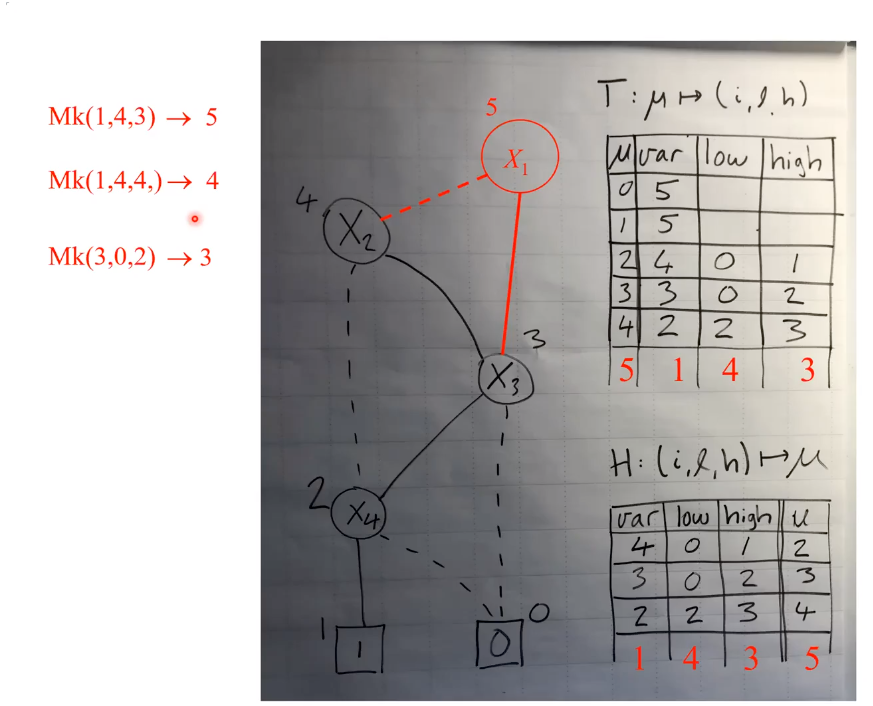 Mk(1,4,3) → 5
Mk(1,4,4,) → 4
Mk(3,0,2) → 3
5
X₁
4
X₂
3
X₃
2
X₄
1
1
0
0
T: μ ↦ (i, l, h)
μ var low high
0 5
1 5
2 4 0 1
3 3 0 2
4 2 2 3
5 1 4 3
H: (i, l, h) ↦ μ
var low high u
4 0 1 2
3 0 2 3
2 2 3 4
1 4 3 5